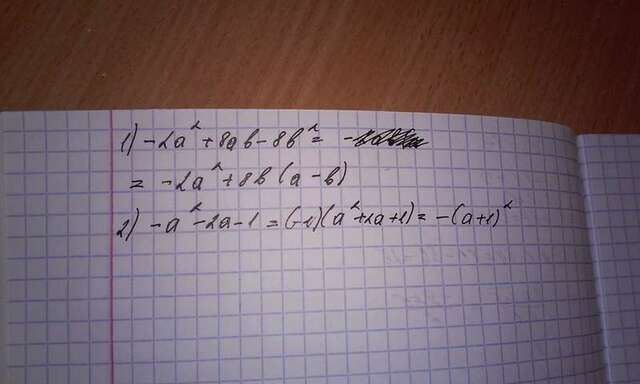 1) -2a² + 8ab - 8b² =
= -2a² + 8b (a - b)
2) -a² - 2a - 1 = (-1)(a² + 2a + 1) = -(a+1)²